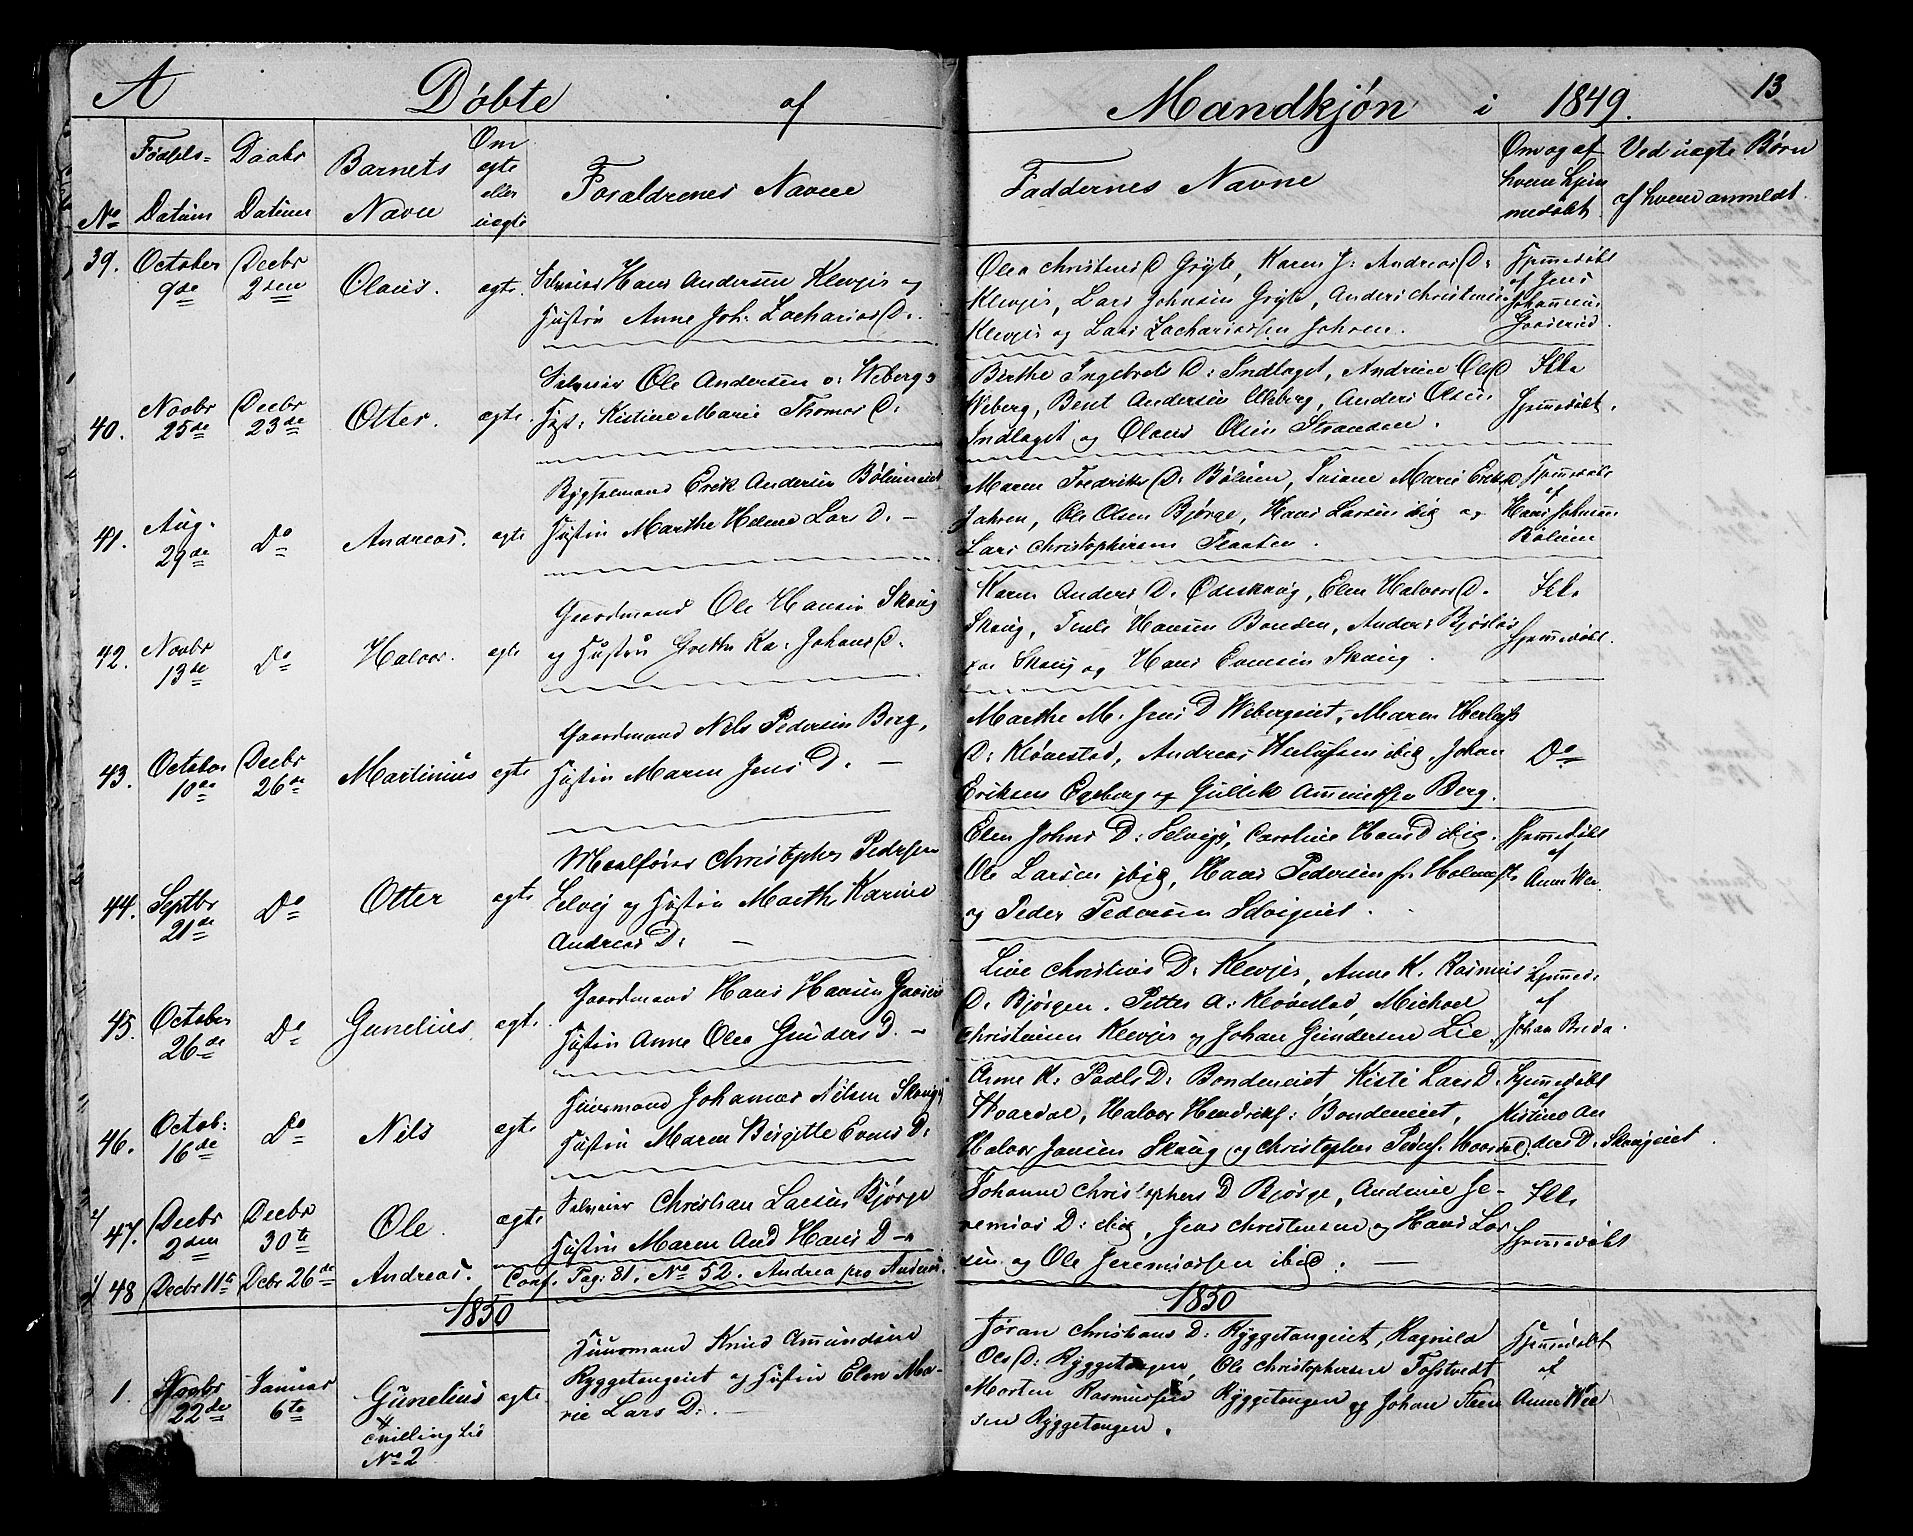 A Døbte af Mandkjøn i 1849. 13
No Fødsels-Datum Daabs Datum Barnets Navn Om egte eller uegte Forældrenes Navne Faddernes Navne Om og af hvem hjemmedøbt Ved uegte Børn af hvem anmeldt.
39. October 9de Decbr 2den Olaus. egte. Hans Andersen Klevjer og
Hustru Anne Joh. Zacharias D.
Olea Christens D Gryte, Karen J. Andreas D:
Klevjer, Lars Johnsen Gryte, Anders Christensen
Klevjer og Lars Zachariassen Jahren.
Hjemmedøbt
af Jens
Johannesen
40. Novbr 25de Decbr 23de Otter. egte. Ole Andersen Weberg
Kistine Marie Thomas D.
Berthe Ingebrets D: Indlaget, Andrine Ols D
Weberg, Bent Andersen Weberg, Anders Olsen
Indlaget og Olaus Olsen Stranden.
Ikke
Hjemmedøbt.
41. Aug. 29de Do Andreas. egte Erik Andersen Bølumeiet
Hustru Marthe Helene Lars D. -
Maren Fredriks D: Bølum, Marie Eriks D
Jahren, Ole Olsen Bjørge, Hans Larsen ibid og
Lars Christophersen Plaaten.
Hjemmedøbt
af
Hans Johnsen
Bølum
42. Novbr 13de Do Halvor. egte Gaardmand Ole Hansen Skaug
og Hustru Grethe Ka. Johans D.
Karen Anders D. Ødeskaug, Elen Halvors D.
Skaug, Hansen Bonden, Anders
Skaug og Hans Evensen Skaug.
Ikke
Hjemmedøbt.
43. October 10de Decbr 26de Martinius egte Gaardmand Nels Pedersen Berg,
Hustru Maren Jens D. -
Marthe M. Jens D Webergeiet, Maren Herlofs
D: Kløvestad, Andreas Herlofsen ibid, Johan
Eriksen Egeberg og Gullik Amundsen Berg.
Do
44. Septbr 21de Do Otter egte Christopher Pedersen
Selvig og Hustru Marthe Karine
Andreas D: -
Elen Johns D: Selvig, Caroline Hans D ibid.
Ole Larsen ibid, Hans Pedersen fr. Holme
og Peder Pedersen Selvigeiet.
Hjemmedøbt
af
Anne Wee.
45. October 26de Do Gunelius egte. Gaardmand Hans Hansen
Hustru Anne Olea Gunders D. -
Live Christians D: Klevjer, Anne K. Rasmus
D. Bjørgen. Petter A. Kløvestad, Michael
Christensen Klevjer og Johan Gundersen Lie.
Hjemmed.
af
Johan Breda.
46. Octob: 16de Do Nels egte Huusmand Johannes Nilsen Skaug
Hustru Maren Birgitte Evens D:
Anne K: Paals D: Bondeneiet Kisti Lars D.
Hvardal, Halvor Hendriks: Bondeneiet,
Halvor Jansen Skaug og Christopher Peders. Hvardal.
Hjemmedøbt
af
Kistine An
ders D: Skaugeiet.
47. Decbr 2den Decbr 30te Ole. egte Christian Larsen Bjørge
Hustru Maren And Hans D -
Johanne Christophers D Bjørge, Andrine Je-
remias D: ibid, Jens Christensen og Hans Lar
sen og Ole Jeremiassen ibid.
Ikke
Hjemmedøbt
48 Decbr 11te Debr 26de Andreas. Conf. Pag: 81. No 52. Andrea pro Andreas.
1850 1850
1. Novbr 22de Januar 6te Gunelius egte. Huusmand Knud Amundsen
Ryggetangeiet og Hustru Elen Ma-
rie Lars D: -
Tvilling til
No 2
Jøran Christians D: Ryggetangeiet, Ragnild
Ols D: Ryggetangen, Ole Christophersen Tofstvedt
Morten Rasmussen Ryggetangen og Johan Steen
sen Ryggetangen.
Hjemmedøbt
af
Anne Wee